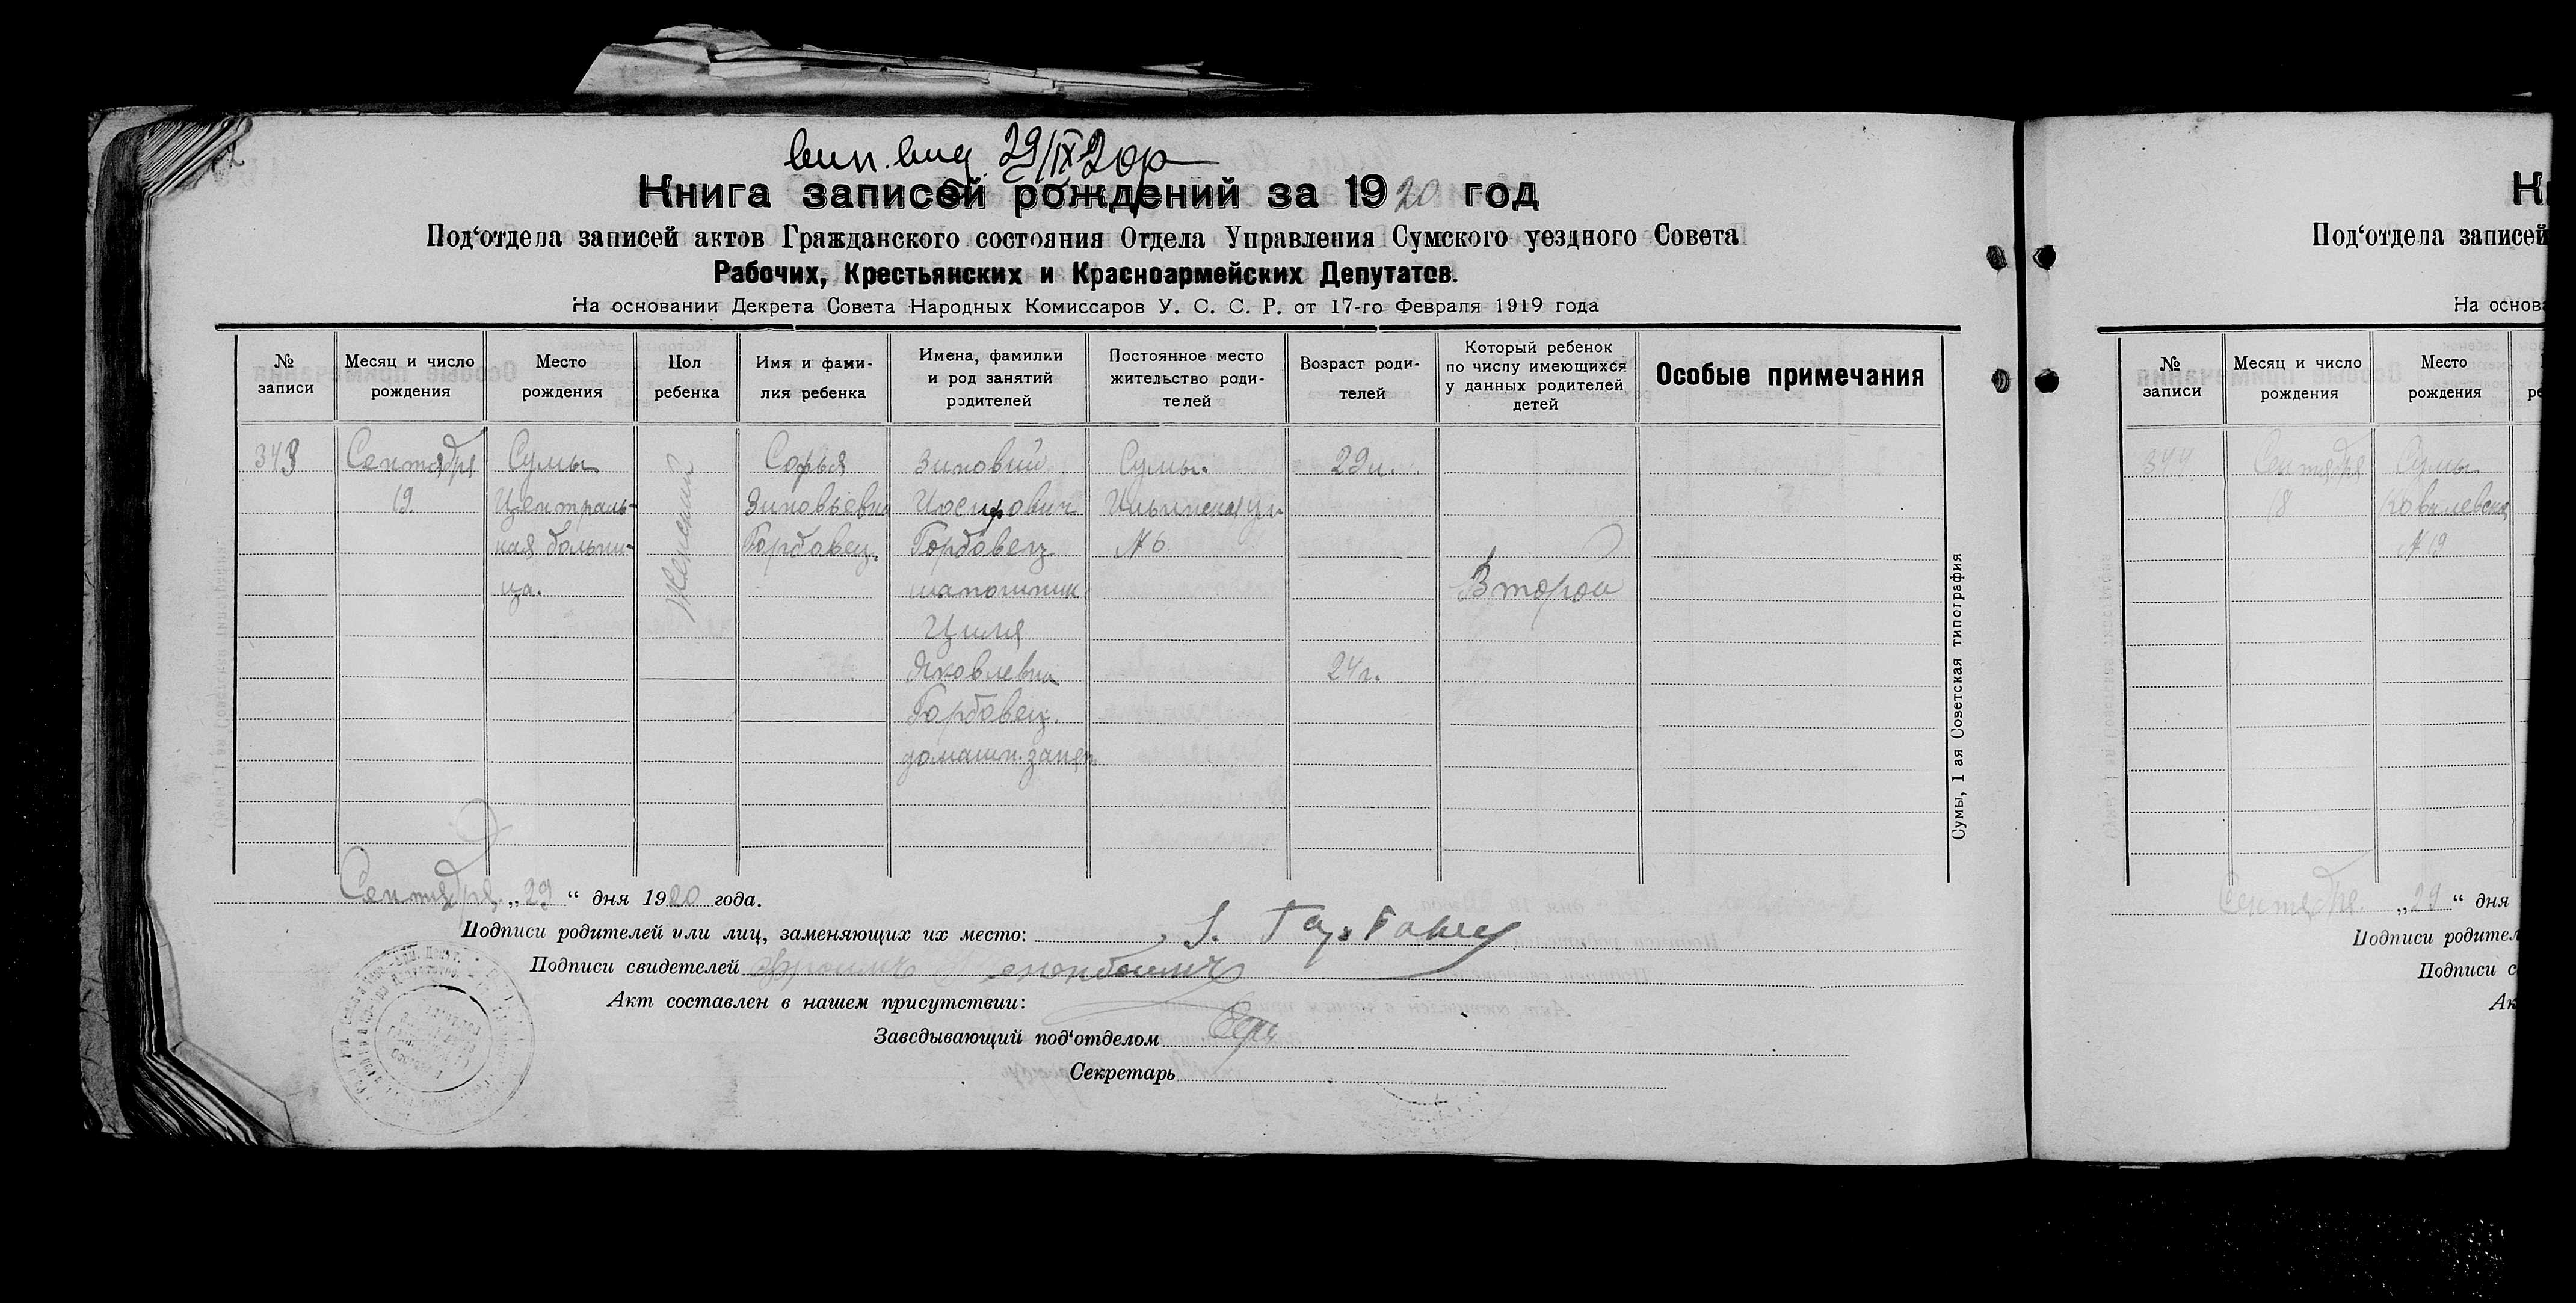 вып. выд. 29/IX 20 р
Книга записей рождений за 1920 год
Под‘отдела записей актов Гражданского состояния Отдела Управления Сумского уездного Совета
Рабочих, Крестьянских и Красноармейских Депутатов.
На основании Декрета Совета Народных Комиссаров У. С. С. Р. от 17-го Февраля 1919 года
№ записи
Месяц и число рождения
Место рождения
Пол ребенка
Имя и фами-
лия ребенка
Имена, фамилии
и род занятий
родителей
Постоянное место
жительство роди-
телей
Возраст роди-
телей
Который ребенок
по числу имеющихся
у данных родителей
детей
Особые примечания
343
Сентября
19
Сумы
Централь-
ная больни-
ца.
Женский
Софья
Зиновьевна
Горбовец.
Зиновий
Иосифович
Горбовец
шапошник
Циля
Яковлевна
Горбовец.
домашн. занят.
Сумы.
Ильинская ул
№ 6.
29 л.
24 г.
Второй
Сумы, 1 ая Советская типография
Сентября „29“ дня 1920 года.
Подписи родителей или лиц, заменяющих их место:
Подписи свидетелей
Акт составлен в нашем присутствии:
Заведывающий под‘отделом
Секретарь
Кн
Под‘отдела записей
На основа
№ записи
Месяц и число рождения
Место рождения
ре
344
Сентября
18
Сумы
Ковалевская
№ 19
Сентября „29“ дня
Подписи родител
Подписи с
Ак